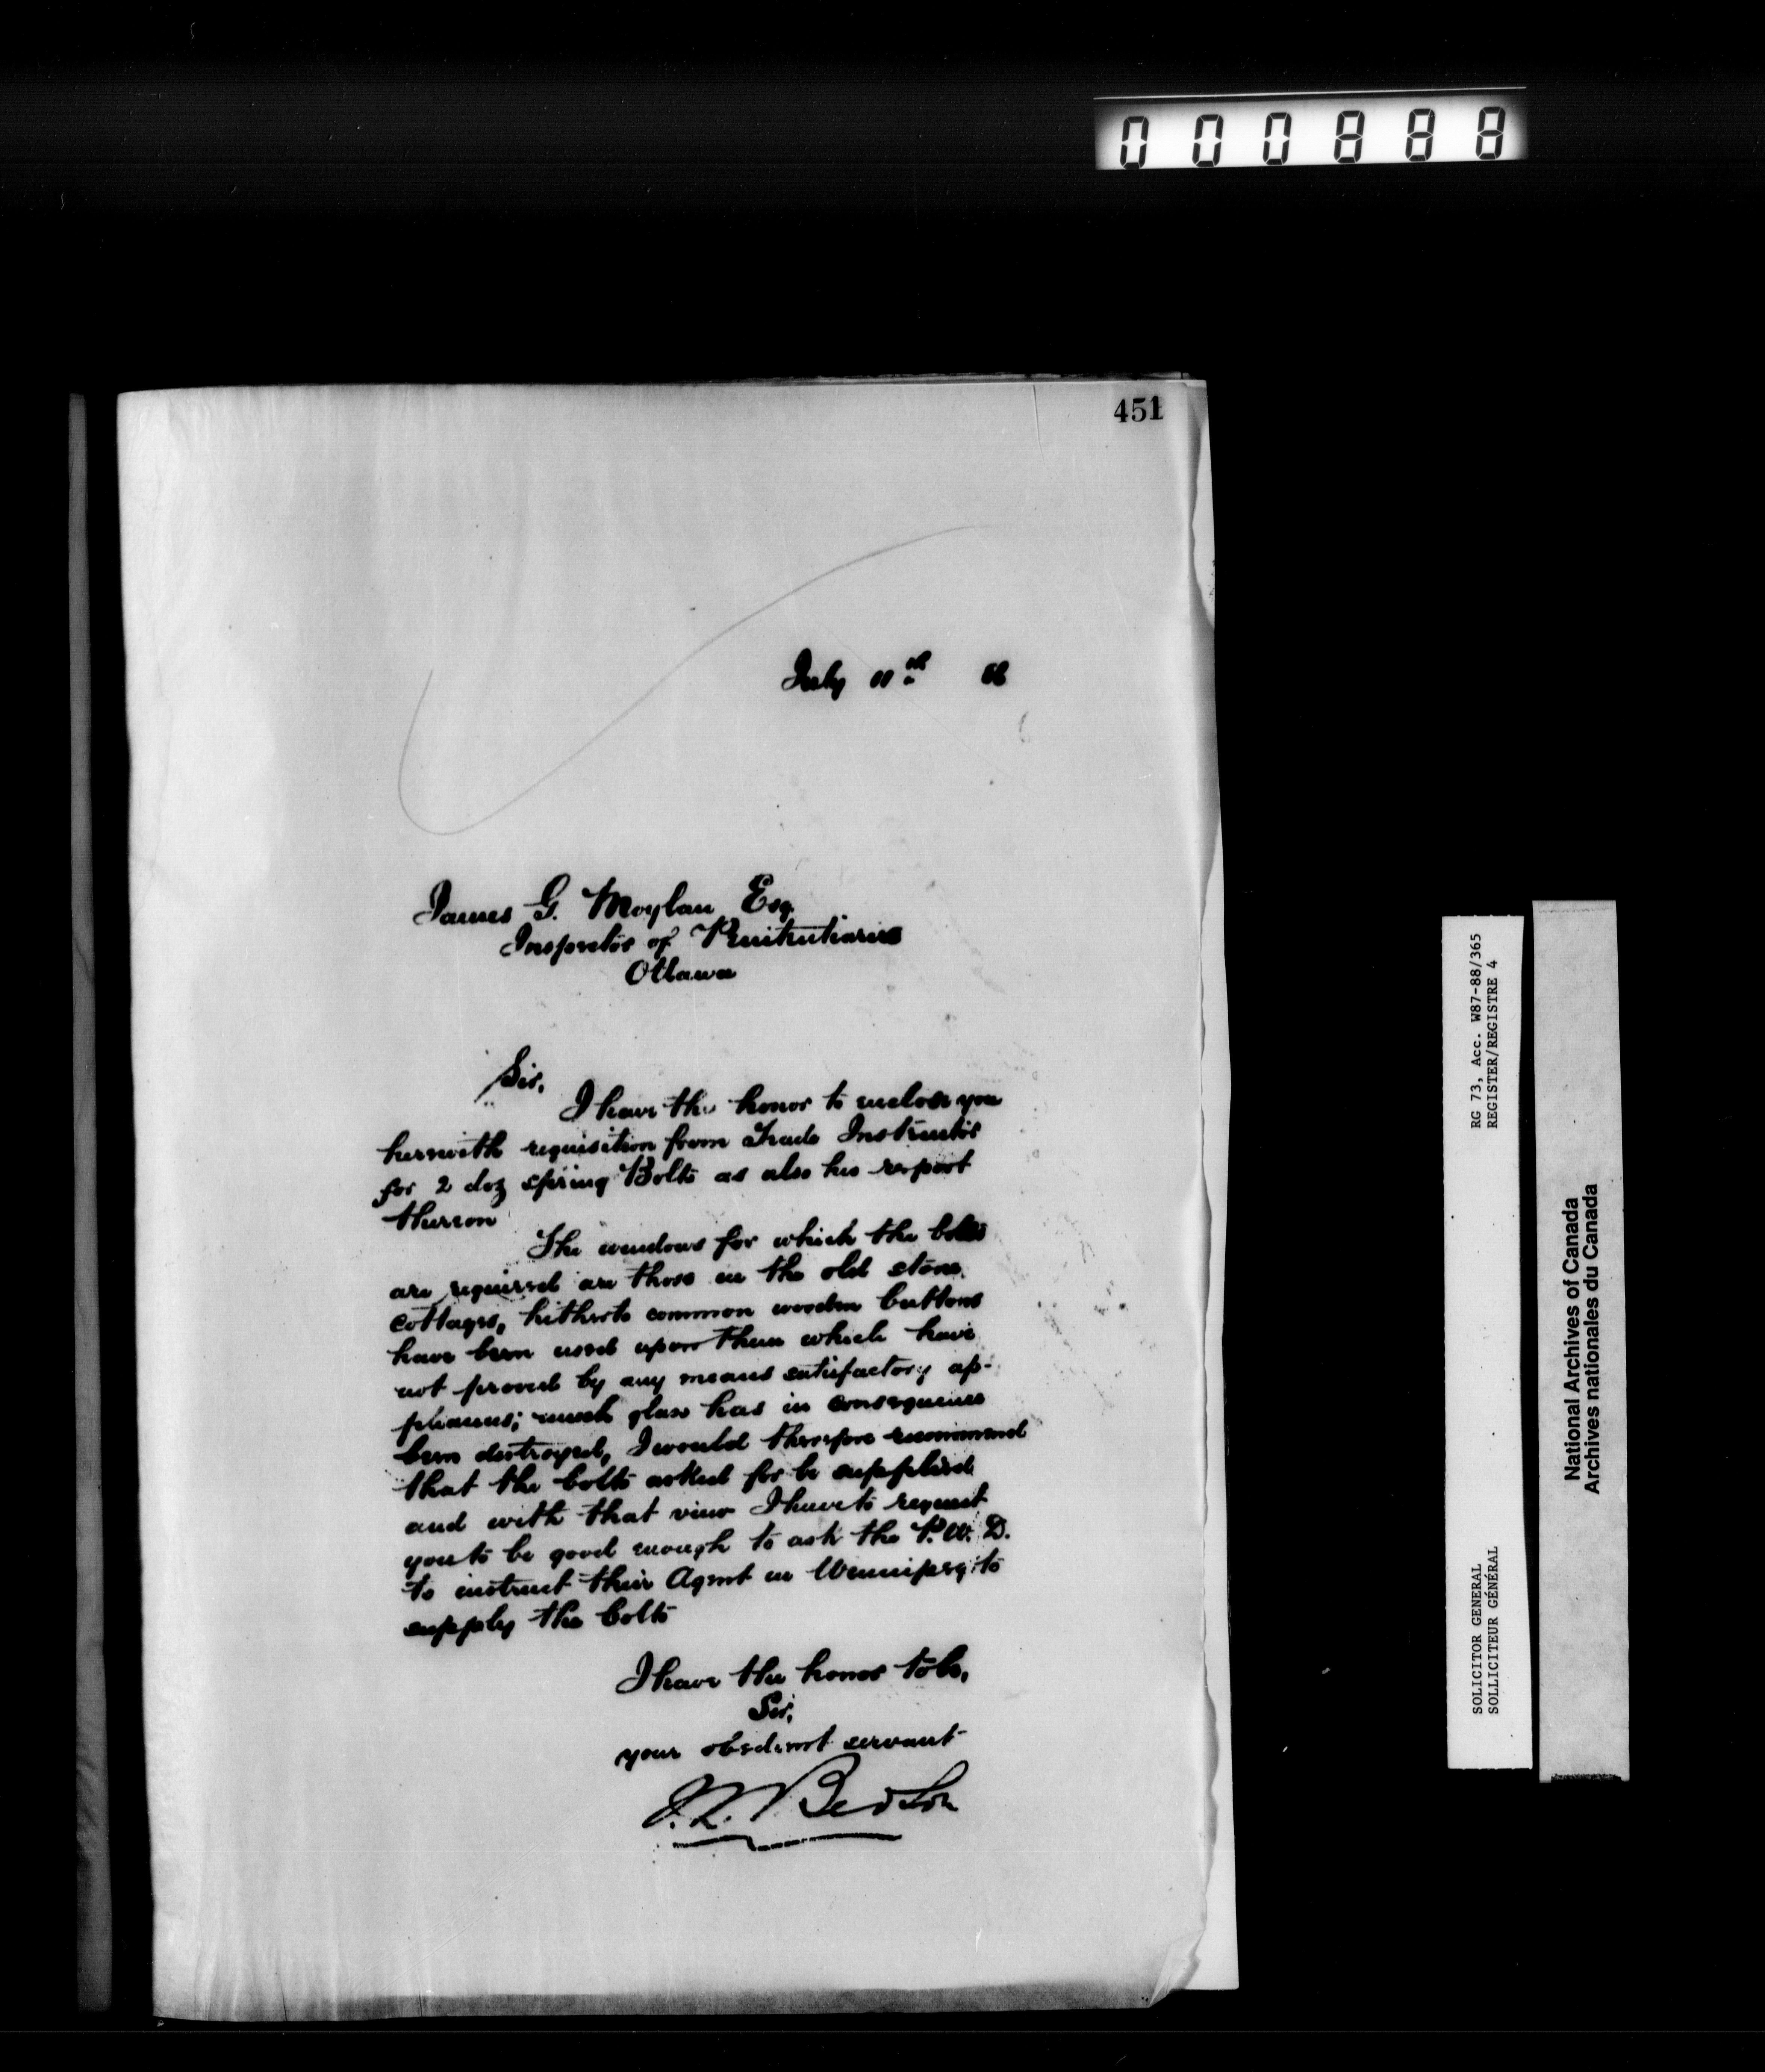 000888
451
July 11th 86
James G. Moylan Esq.
Inspector of Penitentiaries
Ottawa
Sir,
I have the honor to enclose you
herewith requisition from Trade Instructor
for 2 doz spring Bolts as also his report
thereon
The windows for which the bolts
are required are those in the old stone
cottages, hitherto common wooden buttons
have been used upon them which have
not proved by any means satisfactory ap-
pliances; much glass has in consequence
been destroyed, I would therefore recommend
that the bolts asked for be supplied
and with that view I have to request
you to be good enough to ask the P.W.D.
to instruct their Agent in Winnipeg to
supply the bolts
I have the honor to be,
Sir,
your obedient servant
S.L. Bedson
RG 73, Acc. W87-88/365
REGISTER/REGISTRE 4
SOLICITOR GENERAL
SOLLICITEUR GÉNÉRAL
National Archives of Canada
Archives nationales du Canada